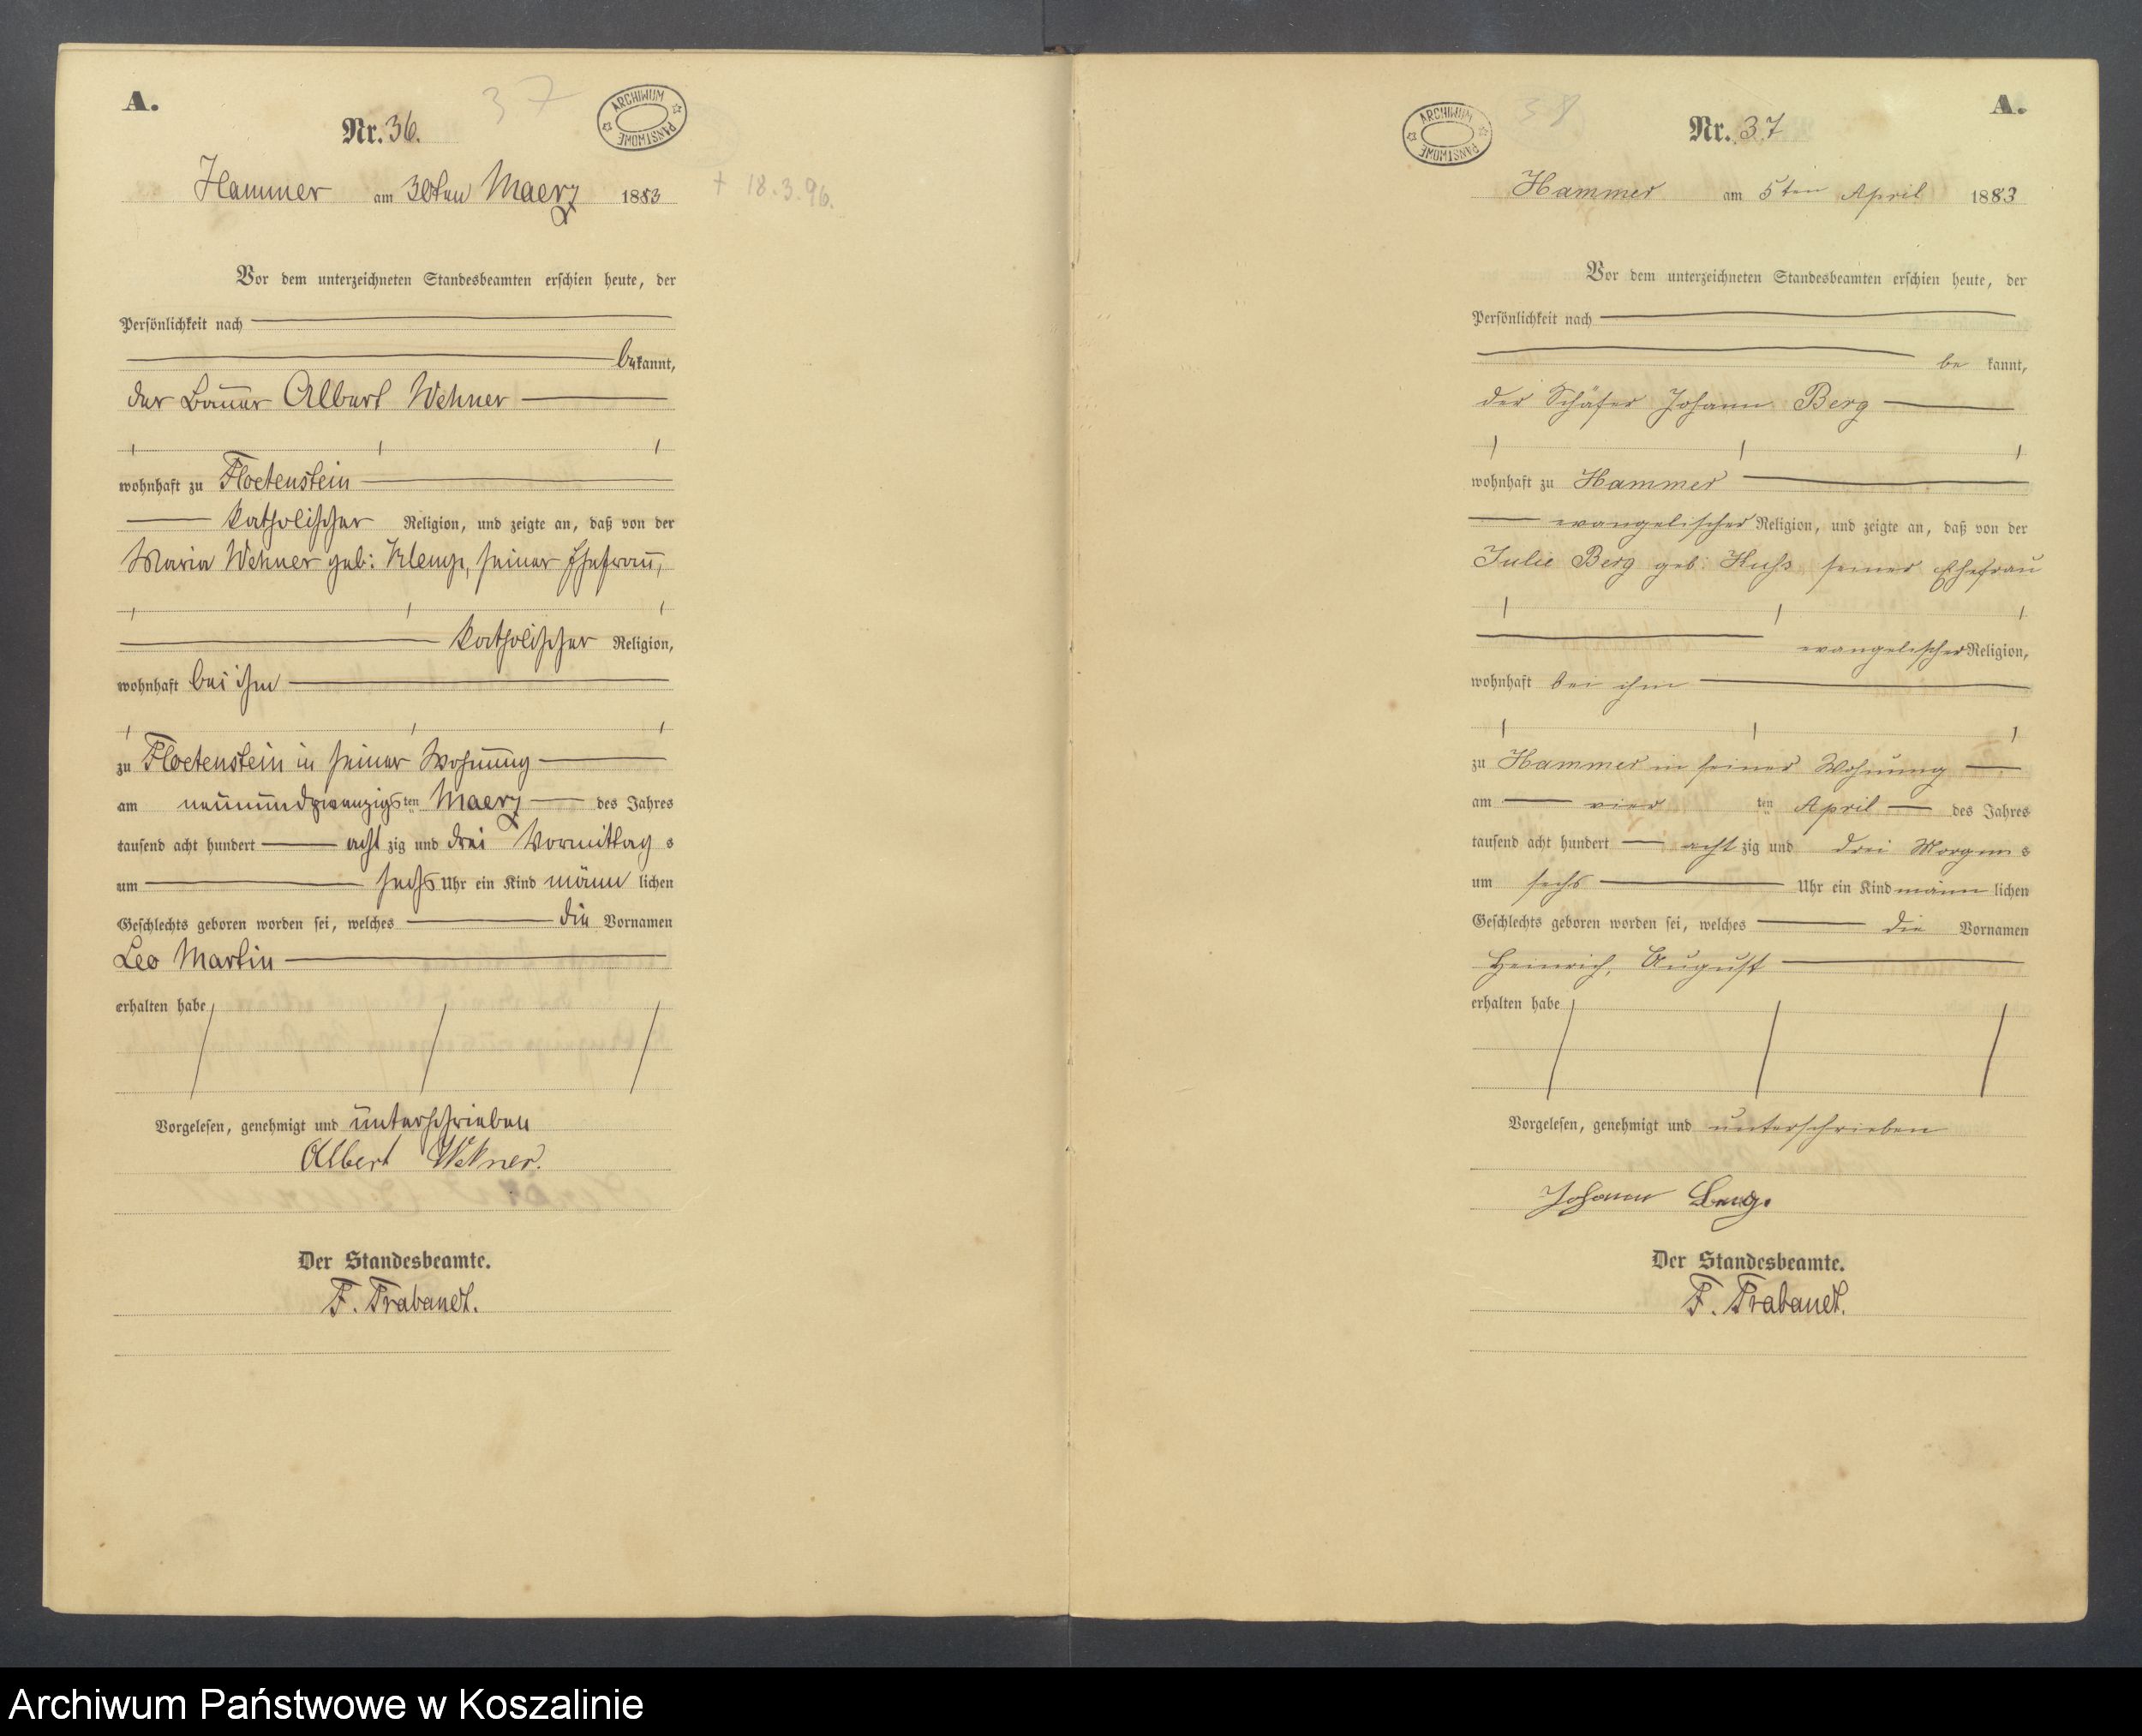 A.
37
ARCHIWUM PAŃSTWOWE
Nr. 36.
Hammer am 30ten Maerz 1883
+ 18.3.96.
Vor dem unterzeichneten Standesbeamten erschien heute, der
Persönlichkeit nach
bekannt,
der Bauer Albert Wehner
wohnhaft zu Floetenstein
katholischer Religion, und zeigte an, daß von der
Maria Wehner geb: Klemp, seiner Ehefrau,
katholischer Religion,
wohnhaft bei ihm
zu Floetenstein in seiner Wohnung
am neunundzwanzigsten Maerz des Jahres
tausend acht hundert achtzig und drei Vormittags
um sechs Uhr ein Kind männlichen
Geschlechts geboren worden sei, welches die Vornamen
Leo Martin
erhalten habe
Vorgelesen, genehmigt und unterschrieben
Albert Wehner.
Der Standesbeamte.
F. Trabandt.
A.
38
ARCHIWUM PAŃSTWOWE
Nr. 37
Hammer am 5ten April 1883
Vor dem unterzeichneten Standesbeamten erschien heute, der
Persönlichkeit nach
bekannt,
der Schäfer Johann Berg
wohnhaft zu Hammer
evangelischer Religion, und zeigte an, daß von der
Julie Berg geb: Kuhs seiner Ehefrau
evangelischer Religion,
wohnhaft bei ihm
zu Hammer in seiner Wohnung
am vierten April des Jahres
tausend acht hundert achtzig und drei Morgens
um sechs Uhr ein Kind männlichen
Geschlechts geboren worden sei, welches die Vornamen
Heinrich, August
erhalten habe
Vorgelesen, genehmigt und unterschrieben
Johann Berg.
Der Standesbeamte.
F. Trabandt.
Archiwum Państwowe w Koszalinie